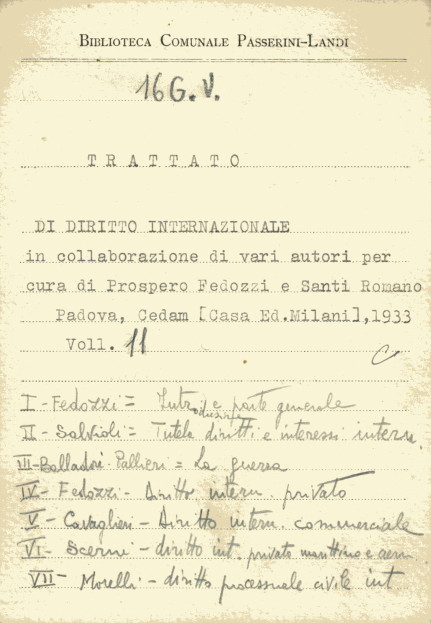 BIBLIOTECA COMUNALE PASSERINI-LANDI
16 G. V.
TRATTATO
DI DIRITTO INTERNAZIONALE
in collaborazione di vari autori per
cura di Prospero Fedozzi e Santi Romano
Padova, Cedam [Casa Ed.Milani],1933
Voll. 11
C
I - Fedozzi = Introduzione e parte generale
II - Salvioli = Tutela diritti e interessi intern.
III - Balladore Pallieri = La guerra
IV - Fedozzi - Diritto intern. privato
V - Cavaglieri - Diritto intern. commerciale
VI - Scerni - diritto int. privato marittimo e aereo
VII - Morelli - diritto processuale civile int.